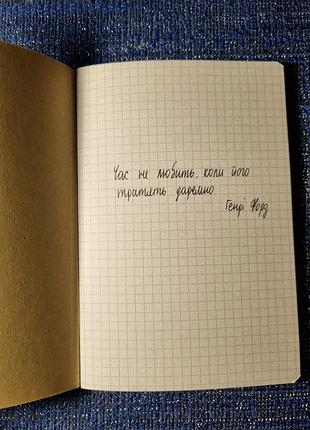 Час не любить, коли його
тратять даремно
Генрі Форд